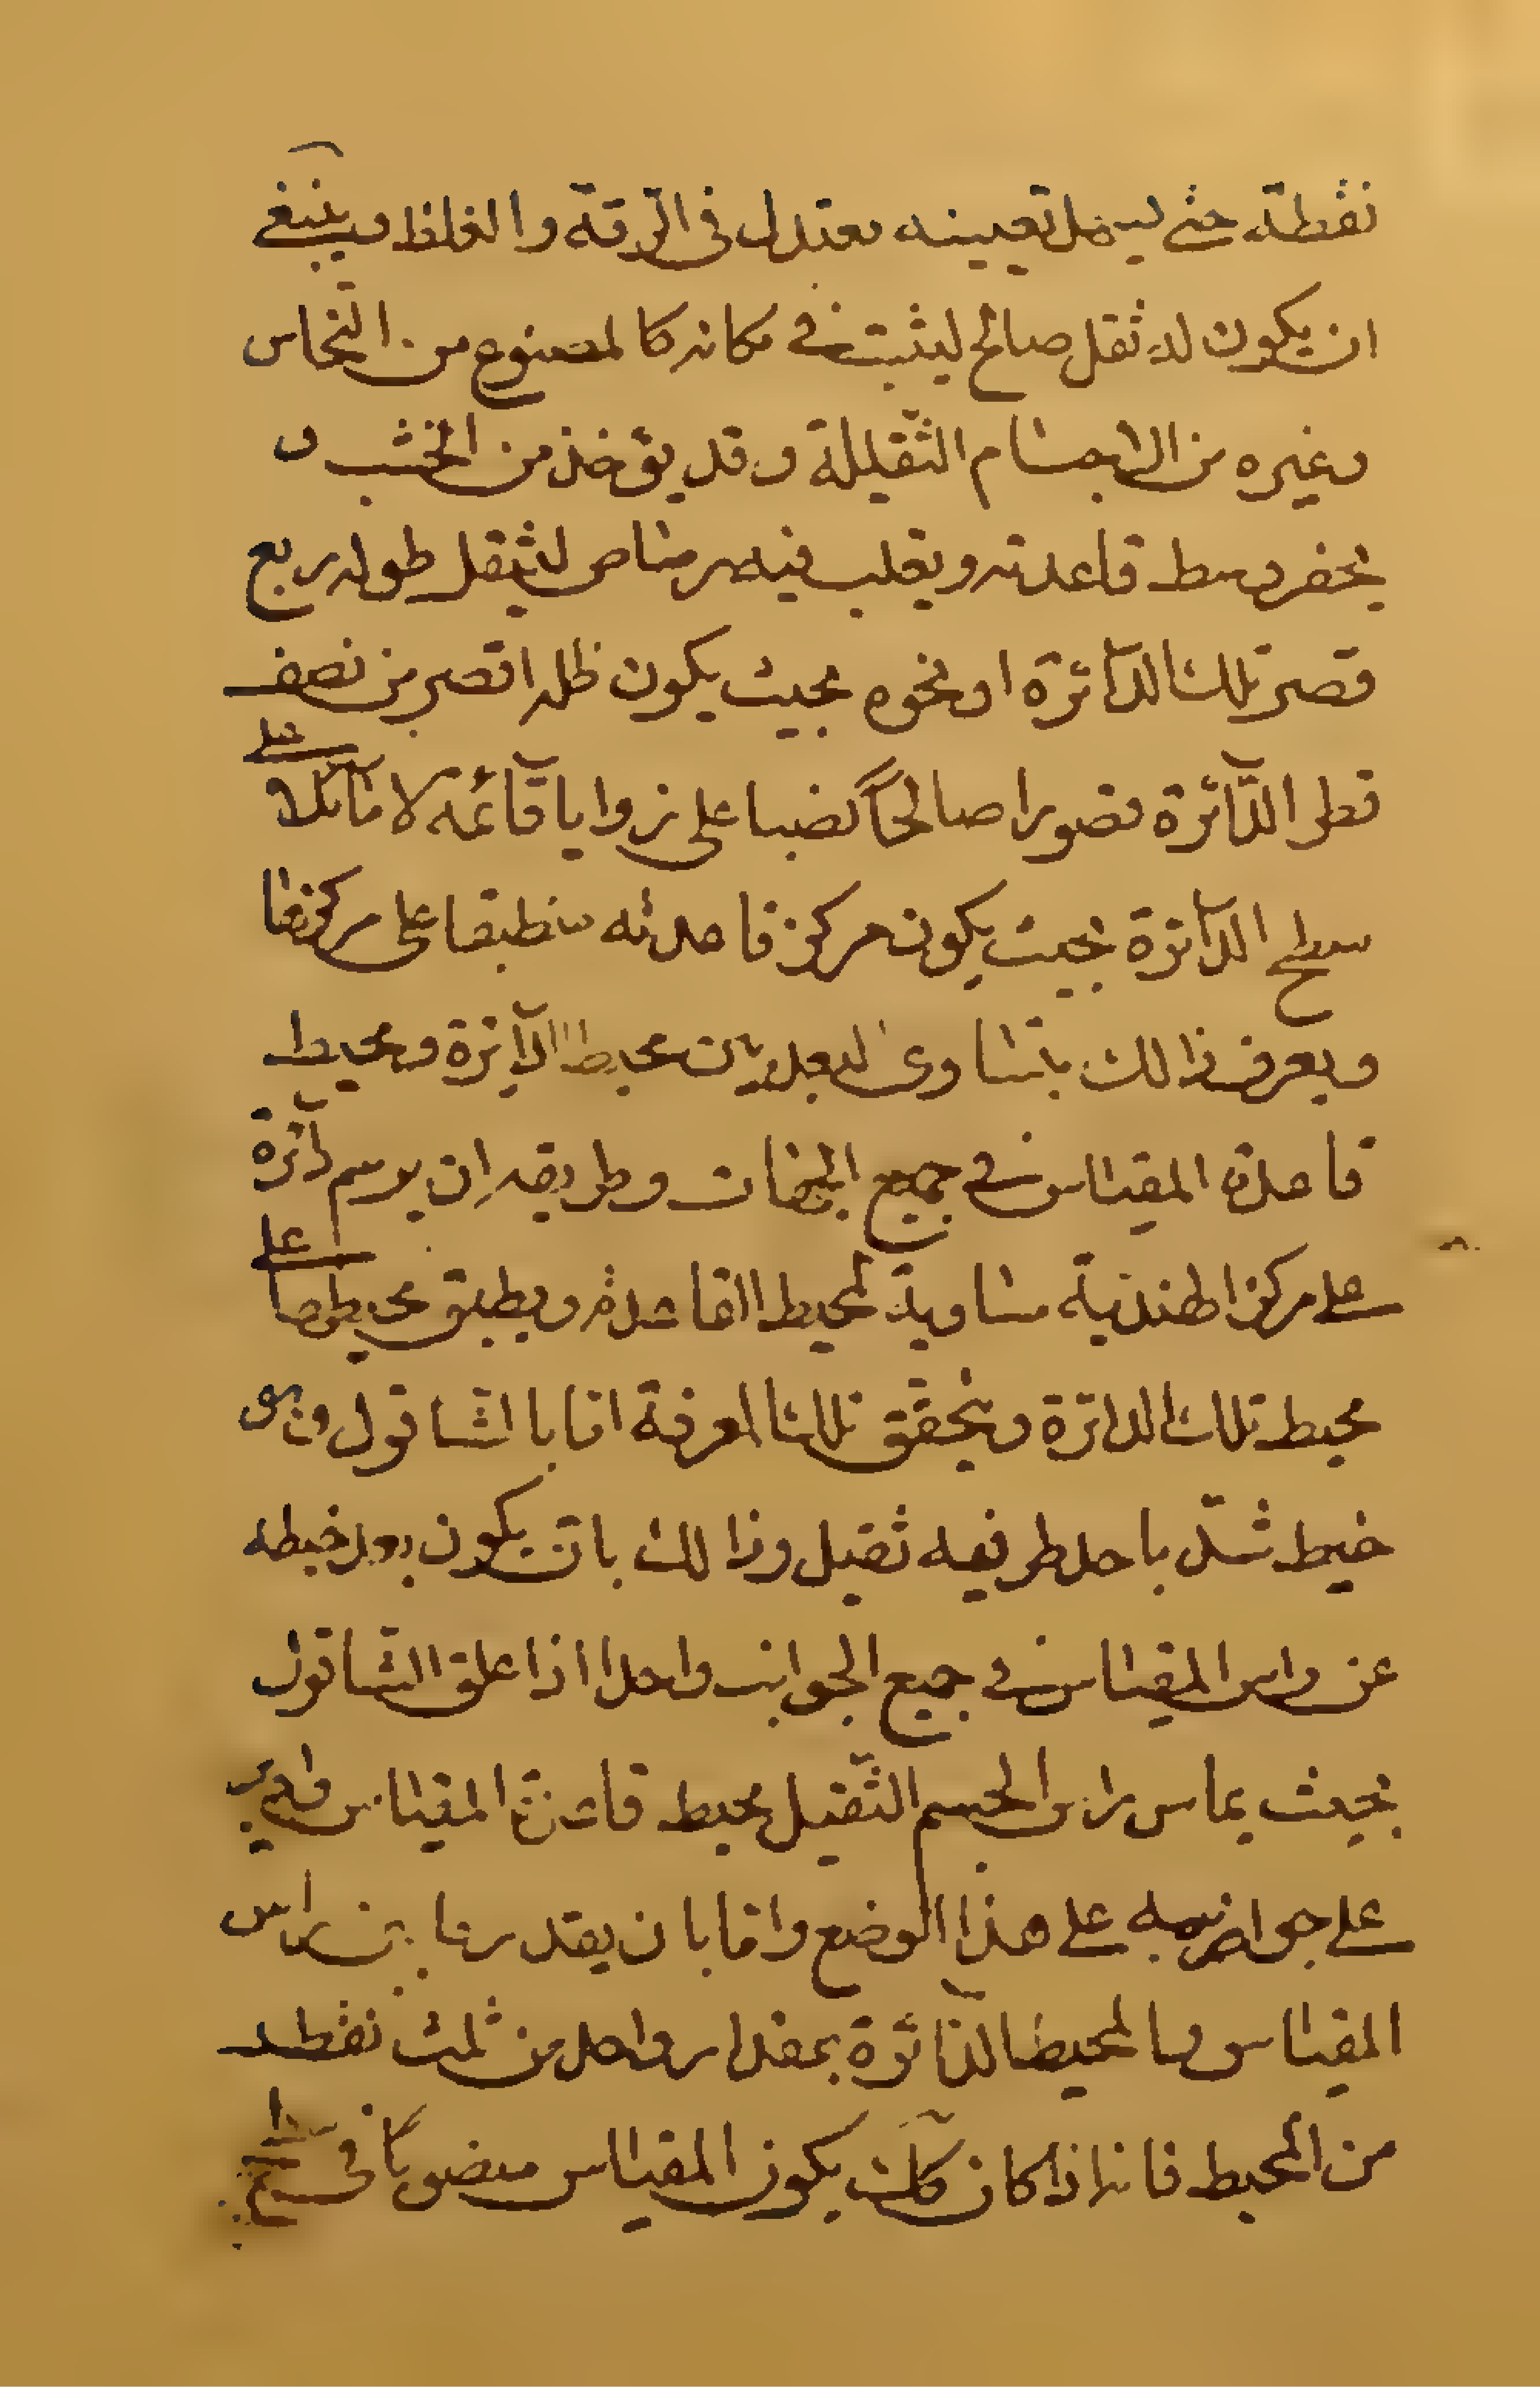 نقطة حتى يسهل تعيينه معتدل في الرقة والغلظ وينبغي
ان يكون له ثقل صالح ليثبت في مكانه كالمصنوع من النحاس
وغيره من الاجسام الثقيلة وقد يؤخذ من الخشب و
يحفر وسط قاعدته ويقلب فيه رصاص ليثقل طوله ربع
قصر تلك الدآئرة او نحوه بحيث يكون ظله اقصر من نصف
قطر الدآئرة قصورا صالحاً نصبا على زوايا قآئمة لا مآئلا على
سطح الدآئرة بحيث يكون مركز قاعدته منطبقا على مركزها
ويعرف ذالك بتساوى البعد بين محيط الدآئرة ومحيط
قاعدة المقياس في جميع الجهات وطريقه ان يرسم دآئرة
على مركز الهندية مساوية لمحيط القاعدة ويطبق محيطها على
محيط تلك الدائرة ويتحقق تلك المعرفة اما بالشاقول وهو
خيط شدّ باحد طرفيه ثقيل وذالك بان يكون بعد خيطه
عن راس المقياس في جميع الجوانب واحدا اذا علق الشاقول
بحيث يماس راس الجسم الثقيل محيط قاعدة المقياس وادير
على جوانبه على هذا الوضع واما بان يقدر ما بين راس
المقياس وما لمحيط الدآئرة بمقدار واحد من ثلث نقطه
من المحيط فانه اذا كان كذلك يكون المقياس منصوباً في سطح